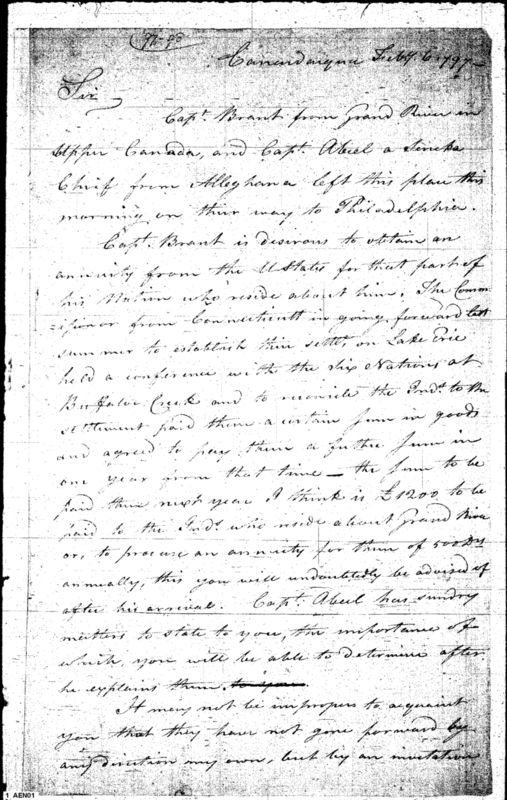 Canandaigua Feby 6 1797
Sir
Capt. Brant from Grand River in
Upper Canada, and Capt. Abeel a Seneka
Chief from Alleghana left this place this
morning on their way to Philadelphia.
Capt. Brant is desirous to obtain an
annuity from the U States for that part of
his Nation who reside about him, The Commi
=sioner from Connecticutt in going forward last
summer to establish their settlt. on Lake Erie
held a conference with the Six Nations at
Buffaloe Creek and to reconcile the Inds. to the
settlement paid them a certain Sum in goods
and agreed to pay them a futher Sum in
one year from that time — the Sum to be
paid the next year I think is £1200 to be
paid to the Inds. who reside about Grand River
or, to procure an annuity for them of 500 Drs
annually, this you will undoubtedly be advised of
after his arrival. Capt. Abeel has sundry
matters to state to you, the importance of
which, you will be able to determine after
he explains them to you.
It may not be improper to acquaint
you that they have not gone forward by
any direction my own, but by an invitation
1 AEN01